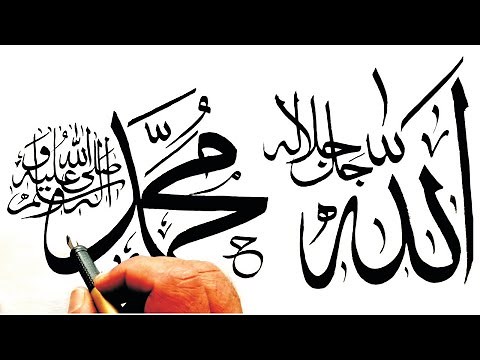 الله
جل جلاله
محمد
صلى الله عليه وآله وسلم